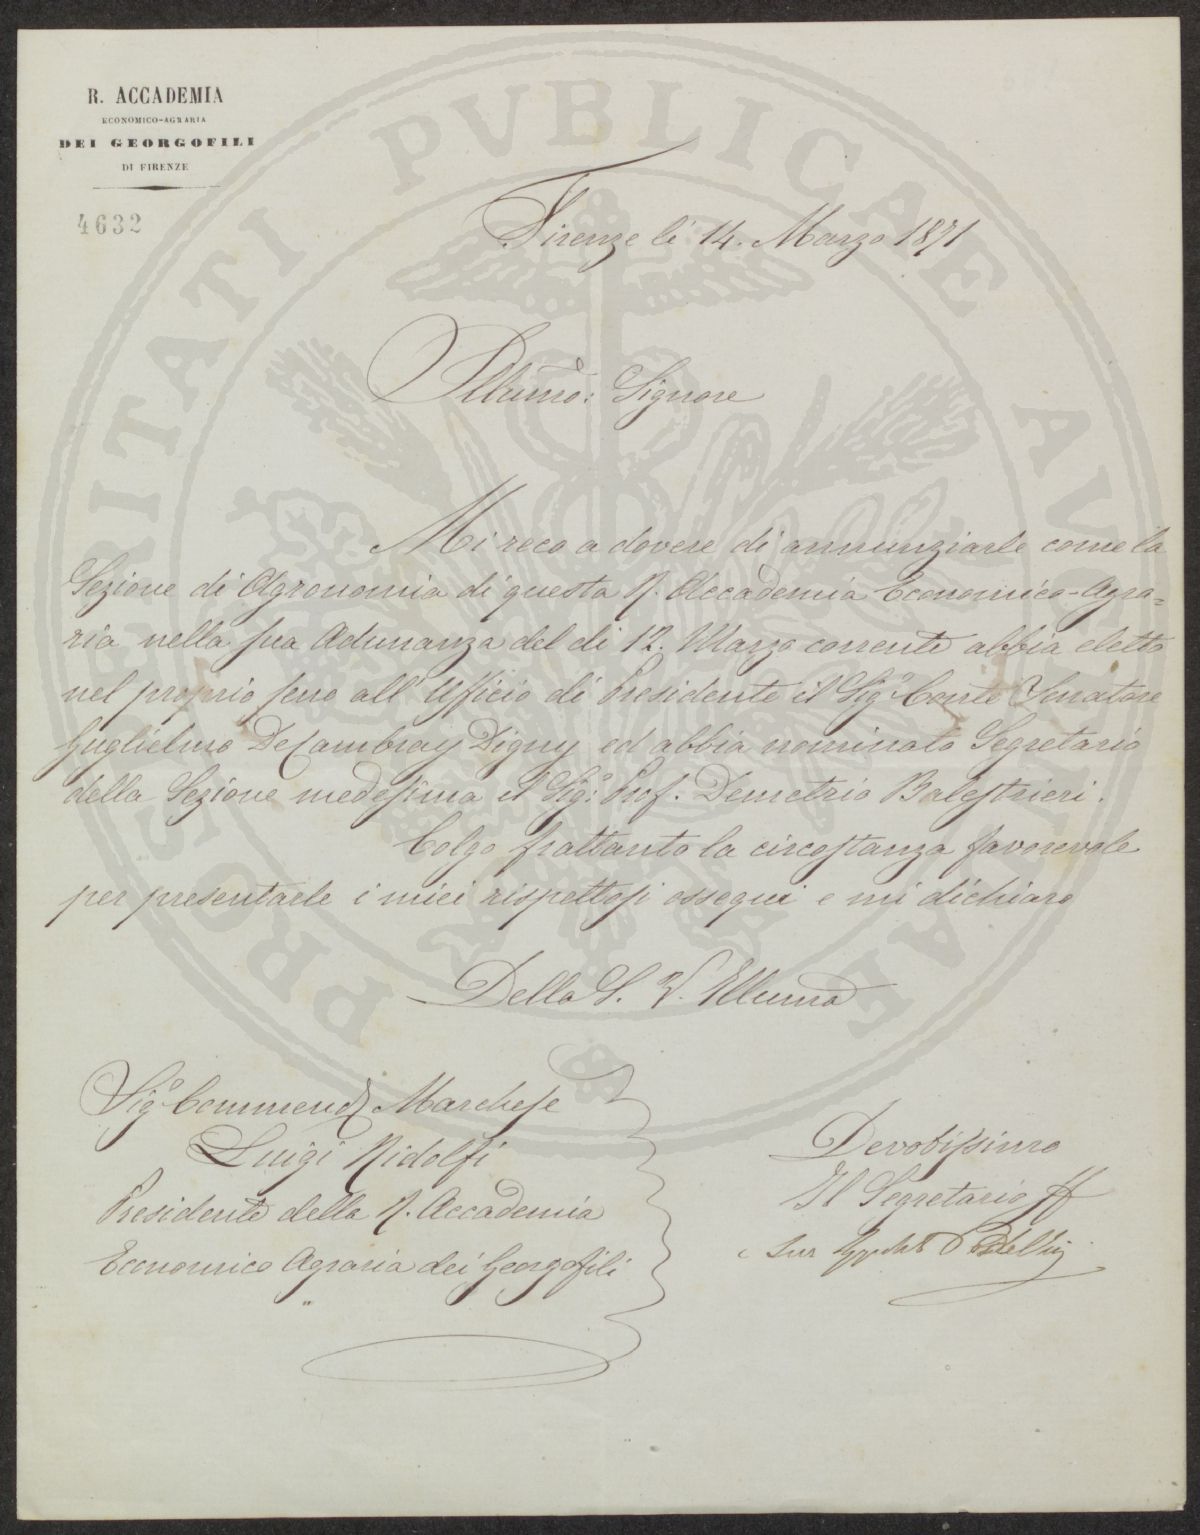 R. ACCADEMIA
ECONOMICO-AGRARIA
DEI GEORGOFILI
DI FIRENZE
4632
PROSPERITATI PVBLICAE AVGENDAE
Firenze li 14. Marzo 1871
Illumo: Signore
Mi reco a dovere di annunziarle come la
Sezione di Agronomia di questa R. Accademia Economico-Agra=
ria nella sua Adunanza del di 12. Marzo corrente abbia eletto
nel proprio seno all' Ufficio di Presidente il Sigo. Conte Senatore
Guglielmo De Cambray Digny ed abbia nominato Segretario
della Sezione medesima il Sigo: Prof. Demetrio Balestrieri.
Colgo frattanto la circostanza favorevole
per presentarle i miei rispettosi ossequi e mi dichiaro
Della S. V. Illuma
Sigo. Commend. Marchese
Luigi Ridolfi
Presidente della R. Accademia
Economico Agraria dei Georgofili
Devotissimo
Il Segretario ff